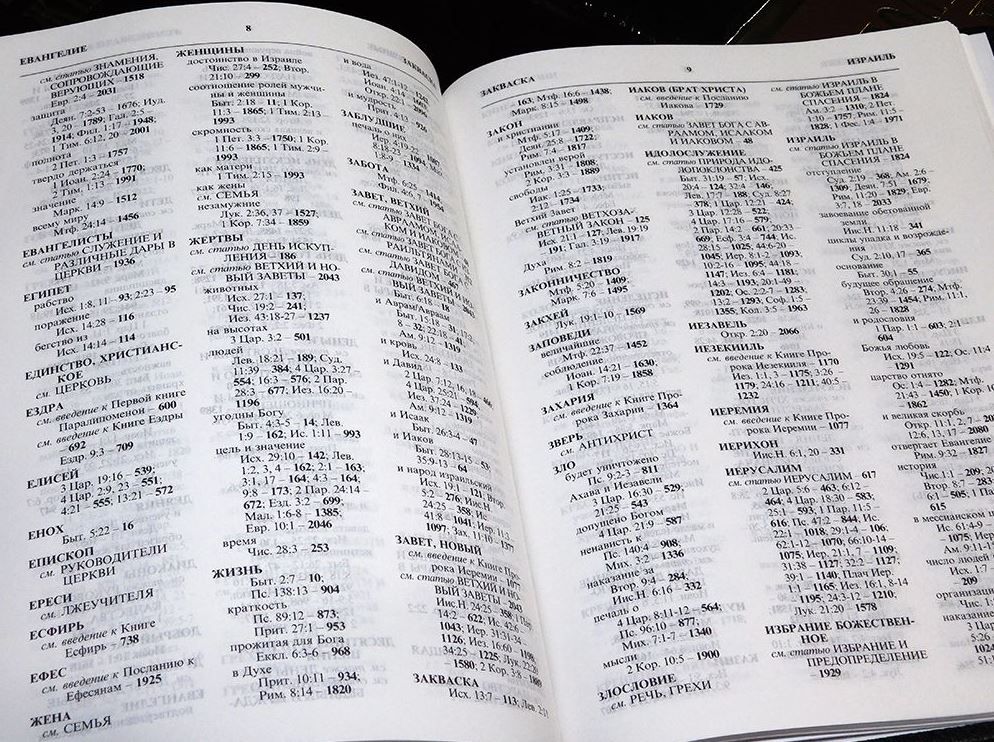 8
ЕВАНГЕЛИЕ
ЗАКВАСКА
см. статью ЗНАМЕНИЯ,
СОПРОВОЖДАЮЩИЕ
ВЕРУЮЩИХ – 1518
Евр. 2:4 – 2031
защита
Деян. 7:2-53 – 1676; Иуд.
3, 20 – 1789; Гал. 2:5 –
1914; Фил. 1:17 – 1948;
1 Тим. 6:12, 20 – 2001
полнота
2 Пет. 1:3 – 1757
твердо держаться
1 Иоан. 2:24 – 1770;
2 Тим. 1:13 – 1991
значение
Марк. 14:9 – 1512
всему миру
Мтф. 24:14 – 1456
ЕВАНГЕЛИСТЫ
см. статью СЛУЖЕНИЕ И
РАЗЛИЧНЫЕ ДАРЫ В
ЦЕРКВИ – 1936
ЕГИПЕТ
рабство
Исх. 1:8, 11 – 93; 2:23 – 95
поражение
Исх. 14:28 – 116
бегство из
Исх. 14:14 – 114
ЕДИНСТВО, ХРИСТИАНС-
КОЕ
см. ЦЕРКОВЬ
ЕЗДРА
см. введение к Первой книге
Паралипоменон – 600
см. введение к Книге Ездры
– 692
Ездр. 9:3 – 709
ЕЛИСЕЙ
3 Цар. 19:16 – 539;
4 Цар. 2:9, 23 – 551;
4:21 – 555; 13:21 – 572
ЕНОХ
Быт. 5:22 – 16
ЕПИСКОП
см. РУКОВОДИТЕЛИ
ЦЕРКВИ
ЕРЕСИ
см. ЛЖЕУЧИТЕЛЯ
ЕСФИРЬ
см. введение к Книге
Есфирь – 738
ЕФЕС
см. введение к Посланию к
Ефесянам – 1925
ЖЕНА
см. СЕМЬЯ
ЖЕНЩИНЫ
достоинство в Израиле
Чис. 27:4 – 252; Втор.
21:10 – 299
соотношение ролей мужчи-
ны и женщины
Быт. 2:18 – 11; 1 Кор.
11:3 – 1865; 1 Тим. 2:13 –
1993
скромность
1 Пет. 3:3 – 1750; 1 Кор.
11:6 – 1865; 1 Тим. 2:9 –
1993
как матери
1 Тим. 2:15 – 1993
как жены
см. СЕМЬЯ
незамужние
Лук. 2:36, 37 – 1527;
1 Кор. 7:34 – 1859
ЖЕРТВЫ
см. статью ДЕНЬ ИСКУП-
ЛЕНИЯ – 186
см. статью ВЕТХИЙ И НО-
ВЫЙ ЗАВЕТЫ – 2043
животных
Исх. 27:1 – 137;
Чис. 19:2 – 241;
Иез. 43:18-27 – 1237
на высотах
3 Цар. 3:2 – 501
людей
Лев. 18:21 – 189; Суд.
11:39 – 384; 4 Цар. 3:27 –
554; 16:3 – 576; 2 Пар.
28:3 – 677; Иез. 16:20 –
1196
угодны Богу
Быт. 4:3-5 – 14; Лев.
1:9 – 162; Ис. 1:11 – 993
цель и значение
Исх. 29:10 – 142; Лев.
1:2, 3, 4 – 162; 2:1 – 163;
3:1, 17 – 164; 4:3 – 164;
9:8 – 173; 2 Пар. 24:14 –
672; Езд. 3:2 – 699;
Мал. 1:6-8 – 1385;
Евр. 10:1 – 2046
время
Чис. 28:3 – 253
ЖИЗНЬ
Быт. 2:7 – 10;
Пс. 138:13 – 904
краткость
Пс. 89:12 – 873;
Прит. 27:1 – 953
прожитая для Бога
Еккл. 6:3-6 – 968
в Духе
Прит. 10:11 – 934;
Рим. 8:14 – 1820
и вода
Иез. 47:1-12
Иоан. 4:1
Откр. 22:1
и мудрость
Прит. 4:13 – 726
ЗАБЛУДШИЕ
печаль о них
Иер. 4:19-22
1:8-9 – 1334
ЗАБОТА
Мтф. 6:25
Фил. 4:6
ЗАВЕТ, ВЕТХИЙ
см. статью
ДАВИДОМ – 467
см. статью ВЕТХИЙ И НО-
ВЫЙ ЗАВЕТЫ
Быт. 6:18
и Аврам/Авраам
Быт. 15:18 – 31; 17:2,
8 – 32; 22:18 – 41;
Ам. 9:12 – 1319
и кровь
Исх. 24:8 – 133
и Давид
2 Цар. 7:12, 16
4 Цар. 25:21
Иез. 37:22 – 1229
Ам. 9:12 – 1319
и Исаак
Быт. 26:3-4 – 47
и Иаков
Быт. 28:13-15 – 53;
35:9-13 – 64
и народ израильский
Исх. 19:1 – 121; Втор.
5:2 – 276; Иис.Н.
24:25 – 358; Ис.
41:8 – 1041; Иер. 11:3 –
1097; Зах. 11:10 – 1377
ЗАВЕТ, НОВЫЙ
см. введение к Книге Про-
рока Иеремии – 1077
см. статью ВЕТХИЙ И НО-
ВЫЙ ЗАВЕТЫ – 2043
Иис.Н. 24:25
14:2 – 622; Ис. 42:6 –
1043; Иер. 31:31-34 –
1126; Иез. 16:60 – 1198;
34:25 – 1225; Лук. 22:20
– 1580; 2 Кор. 3:2 – 1889
ЗАКВАСКА
Исх. 13:7 – 113; Лев. 2:11
9
ЗАКВАСКА
ИЗРАИЛЬ
– 163, Мтф. 16:6 – 1438;
Марк. 8:15 – 1498
ЗАКОН
и христианин
Мтф. 5:17 – 1409;
Деян. 25:8 – 1722;
Рим. 7:4 – 1817
установлен верой
Рим. 3:31 – 1808;
2 Кор. 3:3 – 1889
свободы
Иак. 1:25 – 1733;
2:12 – 1734
Ветхий Завет
см. статью ВЕТХОЗА-
ВЕТНЫЙ ЗАКОН – 125
Исх. 21:1 – 127; Лев. 19:1
191; Гал. 3:19 – 1917
Духа
Рим. 8:2 – 1819
ЗАКОННИЧЕСТВО
Мтф. 5:20 – 1409;
Марк. 7:6 – 1495
ЗАКХЕЙ
Лук. 19:1-10 – 1569
ЗАПОВЕДИ
величайшие
Мтф. 22:37 – 1452
соблюдение
Иоан. 14:21 – 1630;
1 Кор. 7:19 – 1858
ЗАХАРИЯ
см. введение к Книге Про-
рока Захарии – 1364
ЗВЕРЬ
см. АНТИХРИСТ
ЗЛО
будет уничтожено
Пс. 9:2-3 – 811
Ахава и Иезавели
3 Цар. 16:30 – 529;
21:25 – 543
допущено Богом
4 Цар. 21:9 – 587
ненависть к
Пс. 140:4 – 908;
Мих. 3:2 – 1336
наказание за
Втор. 9:4 – 284;
Иис.Н. 6:16 – 332
печаль о
4 Цар. 8:11-12 – 564;
Пс. 96:10 – 877;
Мих. 7:1-7 – 1340
мысли
2 Кор. 10:5 – 1900
ЗЛОСЛОВИЕ
см. РЕЧЬ, ГРЕХИ
ИАКОВ (БРАТ ХРИСТА)
см. введение к Посланию
Иакова – 1729
ИАКОВ
см. статью ЗАВЕТ БОГА С АВ-
РААМОМ, ИСААКОМ
И ИАКОВОМ – 48
ИДОЛОСЛУЖЕНИЕ
см. статью ПРИРОДА ИДО-
ЛОПОКЛОНСТВА – 425
Быт. 31:19 – 57; Исх.
20:4 – 124; 32:4 – 146;
Лев. 17:7 – 188; Суд. 8:27
378; 1 Цар. 12:21 – 424;
3 Цар. 12:28 – 522;
4 Цар. 17:16 – 579;
2 Пар. 14:2 – 661; 20:33
669; Есф. 3:4 – 744; Ис.
28:15 – 1025; 44:6-20 –
1045; Иер. 8:1-2 – 1093;
10:2-16 – 1095; 44:18 –
1147; Иез. 6:4 – 1181;
14:3 – 1193; 20:1-49 –
1202; Ос. 2:2-7 – 1283;
13:2 – 1293; Соф. 1:5 –
1355; Кол. 3:5 – 1963
ИЕЗАВЕЛЬ
Откр. 2:20 – 2066
ИЕЗЕКИИЛЬ
см. введение к Книге Про-
рока Иезекииля – 1170
Иез. 1:1, 3 – 1175; 3:26 –
1179; 24:16 – 1211; 40:5 –
1232
ИЕРЕМИЯ
см. введение к Книге Про-
рока Иеремии – 1077
ИЕРИХОН
Иис.Н. 6:1, 20 – 331
ИЕРУСАЛИМ
см. статью ИЕРУСАЛИМ 617
2 Цар. 5:6 – 463; 6:12 –
464; 4 Цар. 18:30 – 583;
25:1 – 593, 1 Пар. 11:5 –
616; Пс. 47:2 – 844; Ис.
22:1 – 1018, 29:1-4 – 106;
62:1-12 – 1070; 66:10-14 –
1075; Иер. 21:1, 7 – 1109;
31:38 – 1127; 32:2 – 1127;
39:1 – 1140; Плач Иер.
1:1 – 1165; Иез. 16:1, 8-14
– 1195; 24:3-12 – 1210;
Лук. 21:20 – 1578
ИЗБРАНИЕ БОЖЕСТВЕН-
НОЕ
см. статью ИЗБРАНИЕ И
ПРЕДОПРЕДЕЛЕНИЕ
– 1929
см. статью ИЗРАИЛЬ В
БОЖЬЕМ ПЛАНЕ
СПАСЕНИЯ – 1824
Ам. 3:2 – 1310; 2 Пет.
1:10 – 1757; Рим. 11:5
1828; 1 Фес. 1:4 – 1971
ИЗРАИЛЬ
см. статью ИЗРАИЛЬ В
БОЖЬЕМ ПЛАНЕ
СПАСЕНИЯ – 1824
отступление
Суд. 2:19 – 368, Ам. 2:6
– 1309; Деян. 7:51 – 1679;
Рим. 1:29 – 1829; Евр.
7:11 – 2033
завоевание обетованной
земли
Иис.Н. 11:18 – 341
циклы упадка и возрожде-
ния
Суд. 2:10, 17 – 365
основание
Быт. 30:1 – 55
будущее обращение
Втор. 4:26 – 274, Мтф.
23:39 – 1454, Рим. 11:1,
26 – 1828
и родословия
1 Пар. 1:1 – 603; 2:1
604
Божья любовь
Исх. 19:5 – 122; Ос. 11:4
1291
царство отнято
Ос. 1:4 – 1282; Мтф.
21:43 – 1450; 1 Кор.
– 1862
и великая скорбь
Откр. 11:1, 2
12:6, 13, 17 – 2080
отвергает Евангелие
Рим. 9:32 – 1827
история
Чис. 1:1 – 209;
Втор. 8:7 – 283
6:1 – 505; 1 Пар.
615
в мессианском царстве
Ис. 61:4-9
– 1075;
Ам. 9:11-15
число людей
Исх. 1:7 –
– 209
организация
Чис. 1:1
наказание
3 Цар.